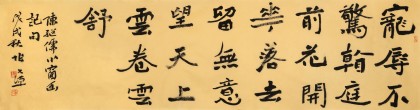 寵辱不
驚看庭
前花開
華落去
留無意
望天上
雲卷雲
舒
陳继儒小窗幽
記句
戊戌秋